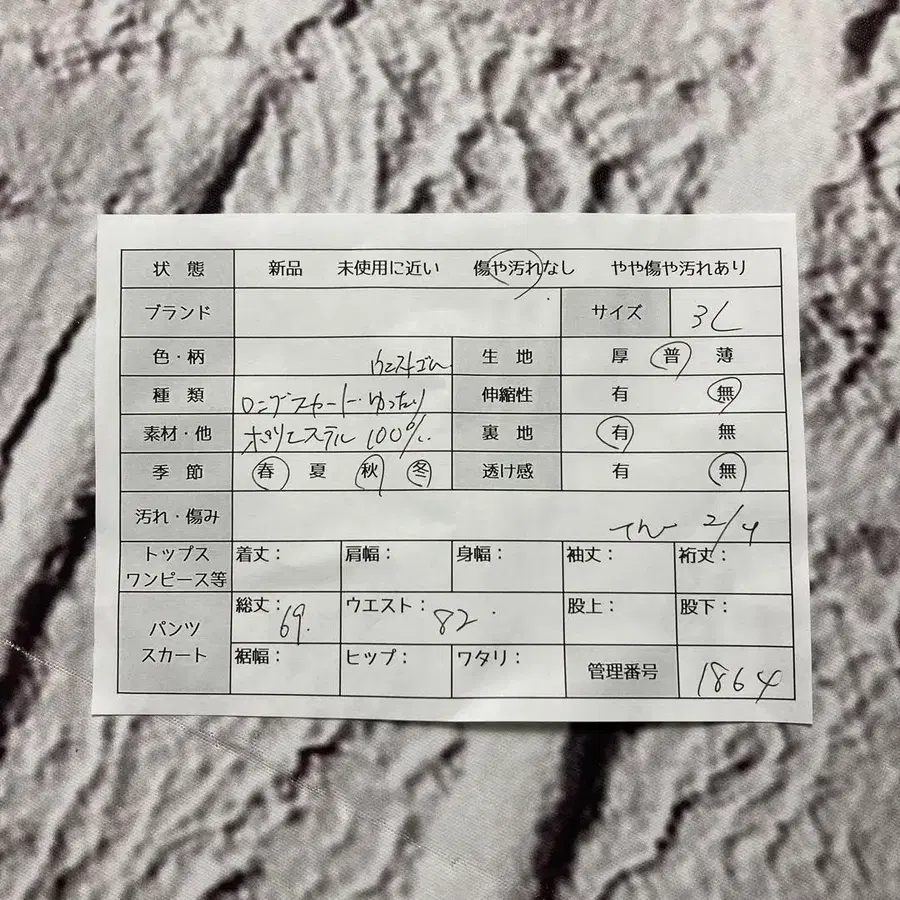 状 態 新品 未使用に近い 傷や汚れなし やや傷や汚れあり
ブランド サイズ 3L
色・柄 ウエストゴム 生 地 厚 普 薄
種 類 ロングスカート・ゆったり 伸縮性 有 無
素材・他 ポリエステル 100% 裏 地 有 無
季 節 春 夏 秋 冬 透け感 有 無
汚れ・傷み 2/4
トップス ワンピース等 着丈： 肩幅： 身幅： 袖丈： 裄丈：
パンツ スカート 総丈：69. ウエスト：82 股上： 股下：
裾幅： ヒップ： ワタリ： 管理番号 1864